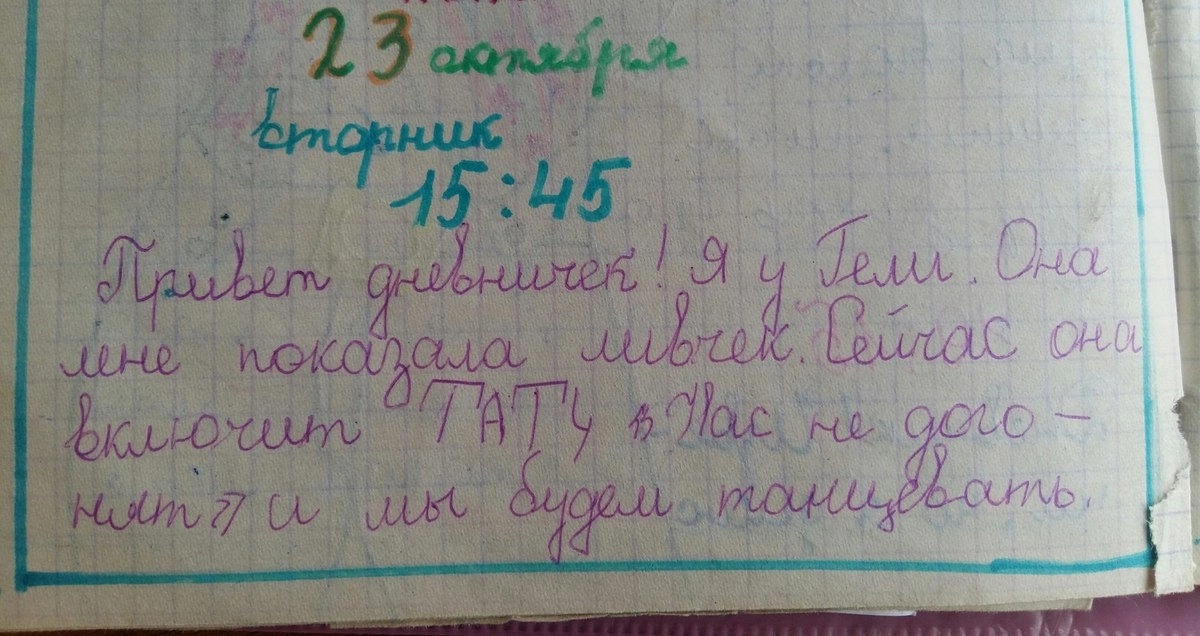 23 октября
вторник
15:45
Привет дневничек! Я у Гели. Она
мне показала ливчек. Сейчас она
включит ТАТу «Нас не дого-
нят» и мы будем танцевать.